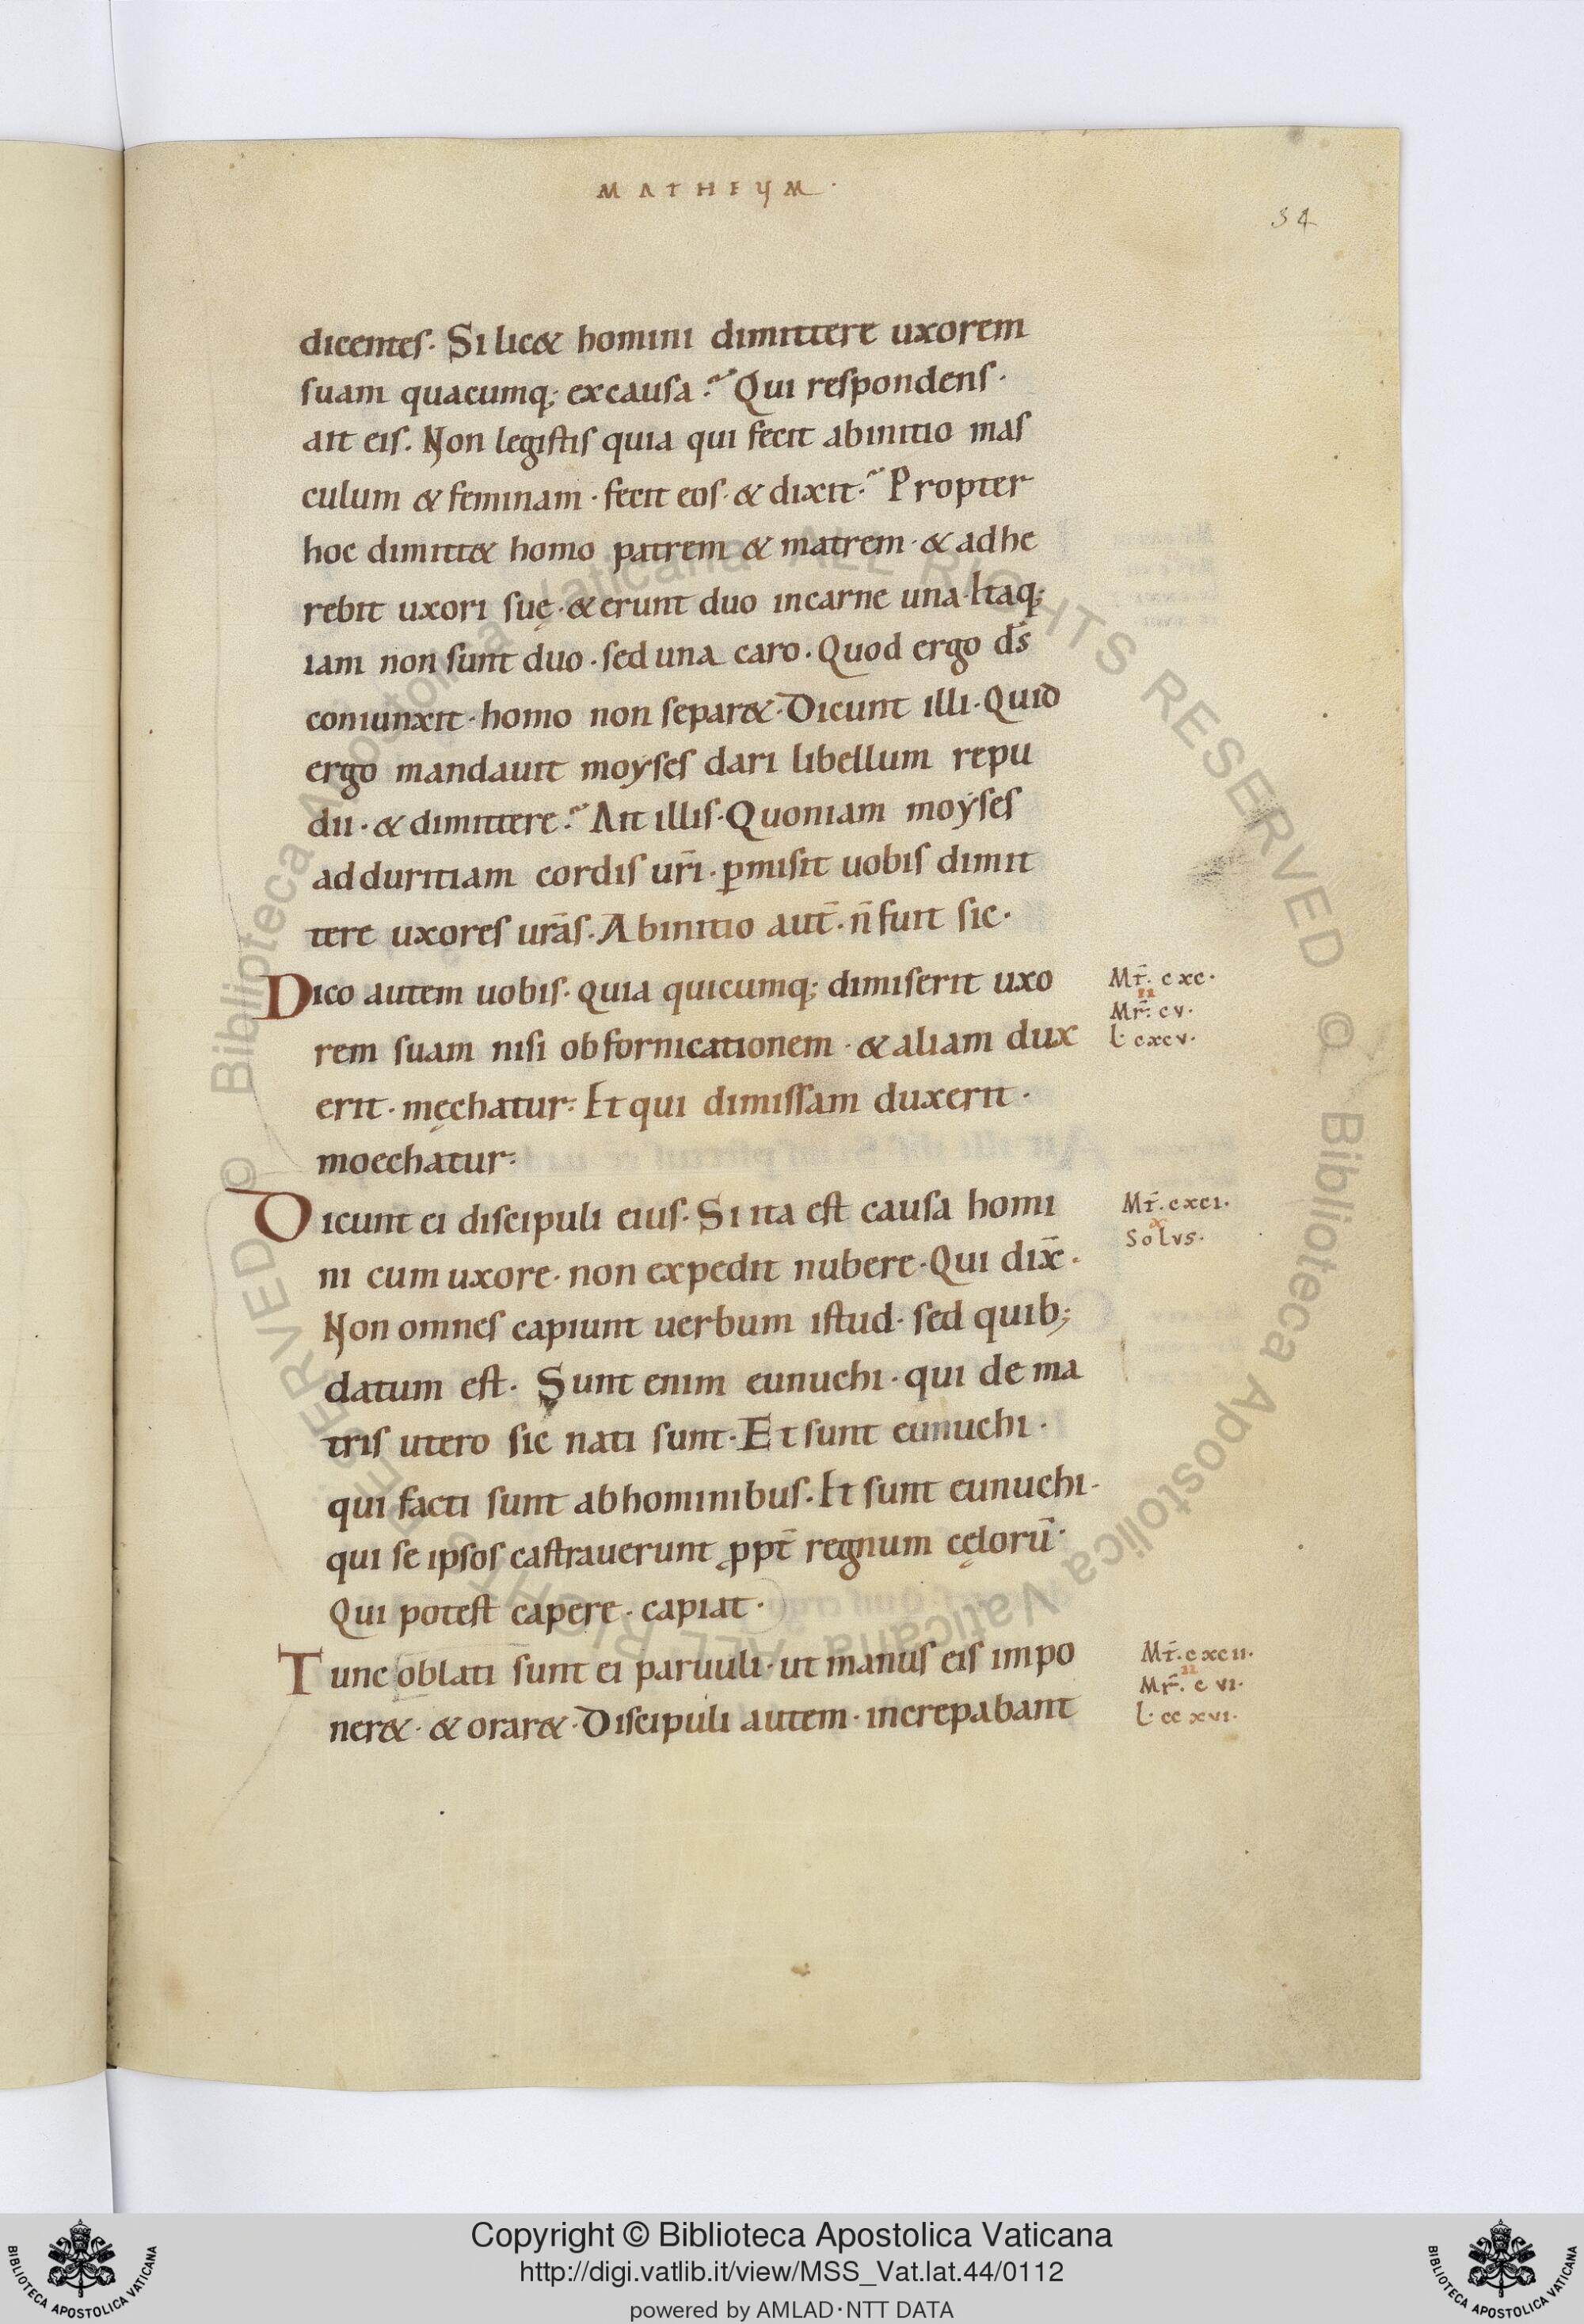 MATHEUM·
54
dicentes· Si lic& homini dimittere uxorem
suam quacumq; ex causa? Qui respondens·
ait eis. Non legistis quia qui fecit ab initio mas
culum & feminam· fecit eos· & dixit? Propter
hoc dimitt& homo patrem & matrem· & adhe
rebit uxori suę· & erunt duo in carne una· Itaq;
iam non sunt duo· sed una caro. Quod ergo d̄s
coniunxit· homo non separ&· Dicunt illi· Quid
ergo mandauit moyses dari libellum repu
dii· & dimittere? Ait illis· Quoniam moyses
ad duritiam cordis ur̄i· ꝑmisit uobis dimit
tere uxores ur̄as· Ab initio aut̄· n̄ fuit sic·
Dico autem uobis· quia quicumq; dimiserit uxo
rem suam nisi ob fornicationem· & aliam dux
erit· męchatur: Et qui dimissam duxerit·
moechatur:
Dicunt ei discipuli eius· Si ita est causa homi
ni cum uxore· non expedit nubere· Qui dix̄·
Non omnes capiunt uerbum istud· sed quib;
datum est· Sunt enim eunuchi· qui de ma
tris utero sic nati sunt· Et sunt eunuchi·
qui facti sunt ab hominibus. Et sunt eunuchi·
qui se ipsos castrauerunt ꝓpt̄ regnum cęlorū·
Qui potest capere· capiat·
Tunc oblati sunt ei paruuli· ut manus eis impo
ner&· & orar&· Discipuli autem· increpabant
Mt̄· cxc·
II
Mr̄· cv·
L· cxcv·
Mt̄· cxci·
x
Solus·
Mt̄· cxcii·
II
Mr̄· cvi·
L· ccxvi·
© Biblioteca Apostolica Vaticana ALL RIGHTS RESERVED © Biblioteca Apostolica Vaticana ALL RIGHTS RESERVED
Copyright © Biblioteca Apostolica Vaticana
http://digi.vatlib.it/view/MSS_Vat.lat.44/0112
powered by AMLAD·NTT DATA
BIBLIOTECA APOSTOLICA VATICANA
BIBLIOTECA APOSTOLICA VATICANA